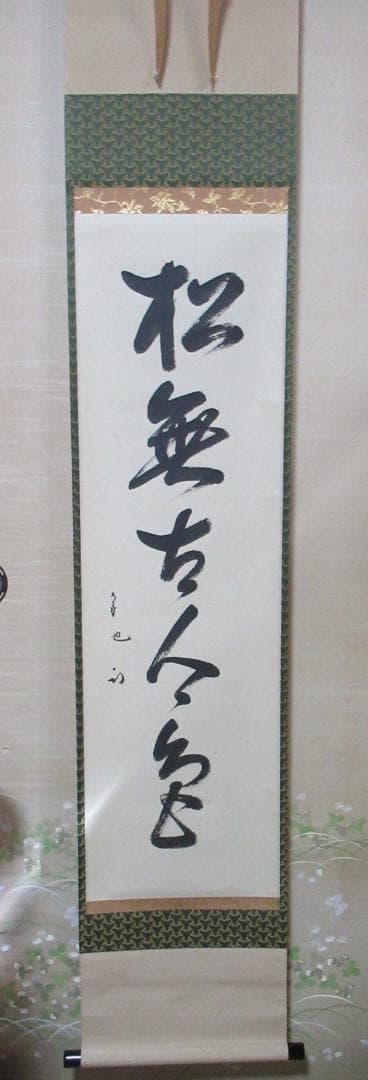 松無古今色
也